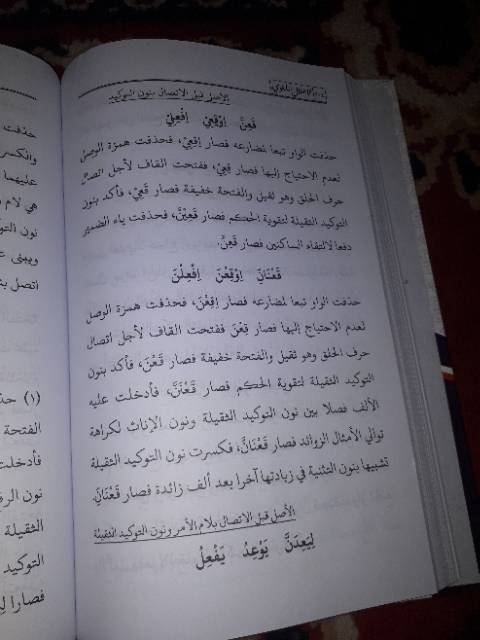 الأصل قبل الاتصال بنون التوكيد
قَعِنَّ اِوْقِعِيْ اِفْعِلِيْ
حذفت الواو تبعا لمضارعه فصار اِقِعِيْ، فحذفت همزة الوصل
لعدم الاحتياج إليها فصار قِعِيْ، ففتحت القاف لأجل اتصال
حرف الحلق وهو ثقيل والفتحة خفيفة فصار قَعِيْ، فأكد بنون
التوكيد الثقيلة لتقوية الحكم فصار قَعِيْنَّ، فحذفت ياء الضمير
دفعا لالتقاء الساكنين فصار قَعِنَّ.
قَعْنَانِّ اِوْقِعْنَ اِفْعِلْنَ
حذفت الواو تبعا لمضارعه فصار اِقِعْنَ، فحذفت همزة الوصل
لعدم الاحتياج إليها فصار قِعْنَ ففتحت القاف لأجل اتصال
حرف الحلق وهو ثقيل والفتحة خفيفة فصار قَعْنَ، فأكد بنون
التوكيد الثقيلة لتقوية الحكم فصار قَعْنَنَّ، فأدخلت عليه
الألف فصلا بين نون التوكيد الثقيلة ونون الإناث لكراهة
توالي الأمثال الزوائد فصار قَعْنَانَّ، فكسرت نون التوكيد الثقيلة
تشبيها بنون التثنية في زيادتها آخرا بعد ألف زائدة فصار قَعْنَانِّ.
الأصل قبل الاتصال بلام الأمر ونون التوكيد الثقيلة
لِيَعِدَنَّ يَوْعِدُ يَفْعِلُ
حذفت
والكسر
عليهما
هي لام
نون التو
ويبنى ع
اتصل بن
(١) حذ
الفتحة
فأدخلت
نون الر
الثقيلة
التوكيد
فصارا